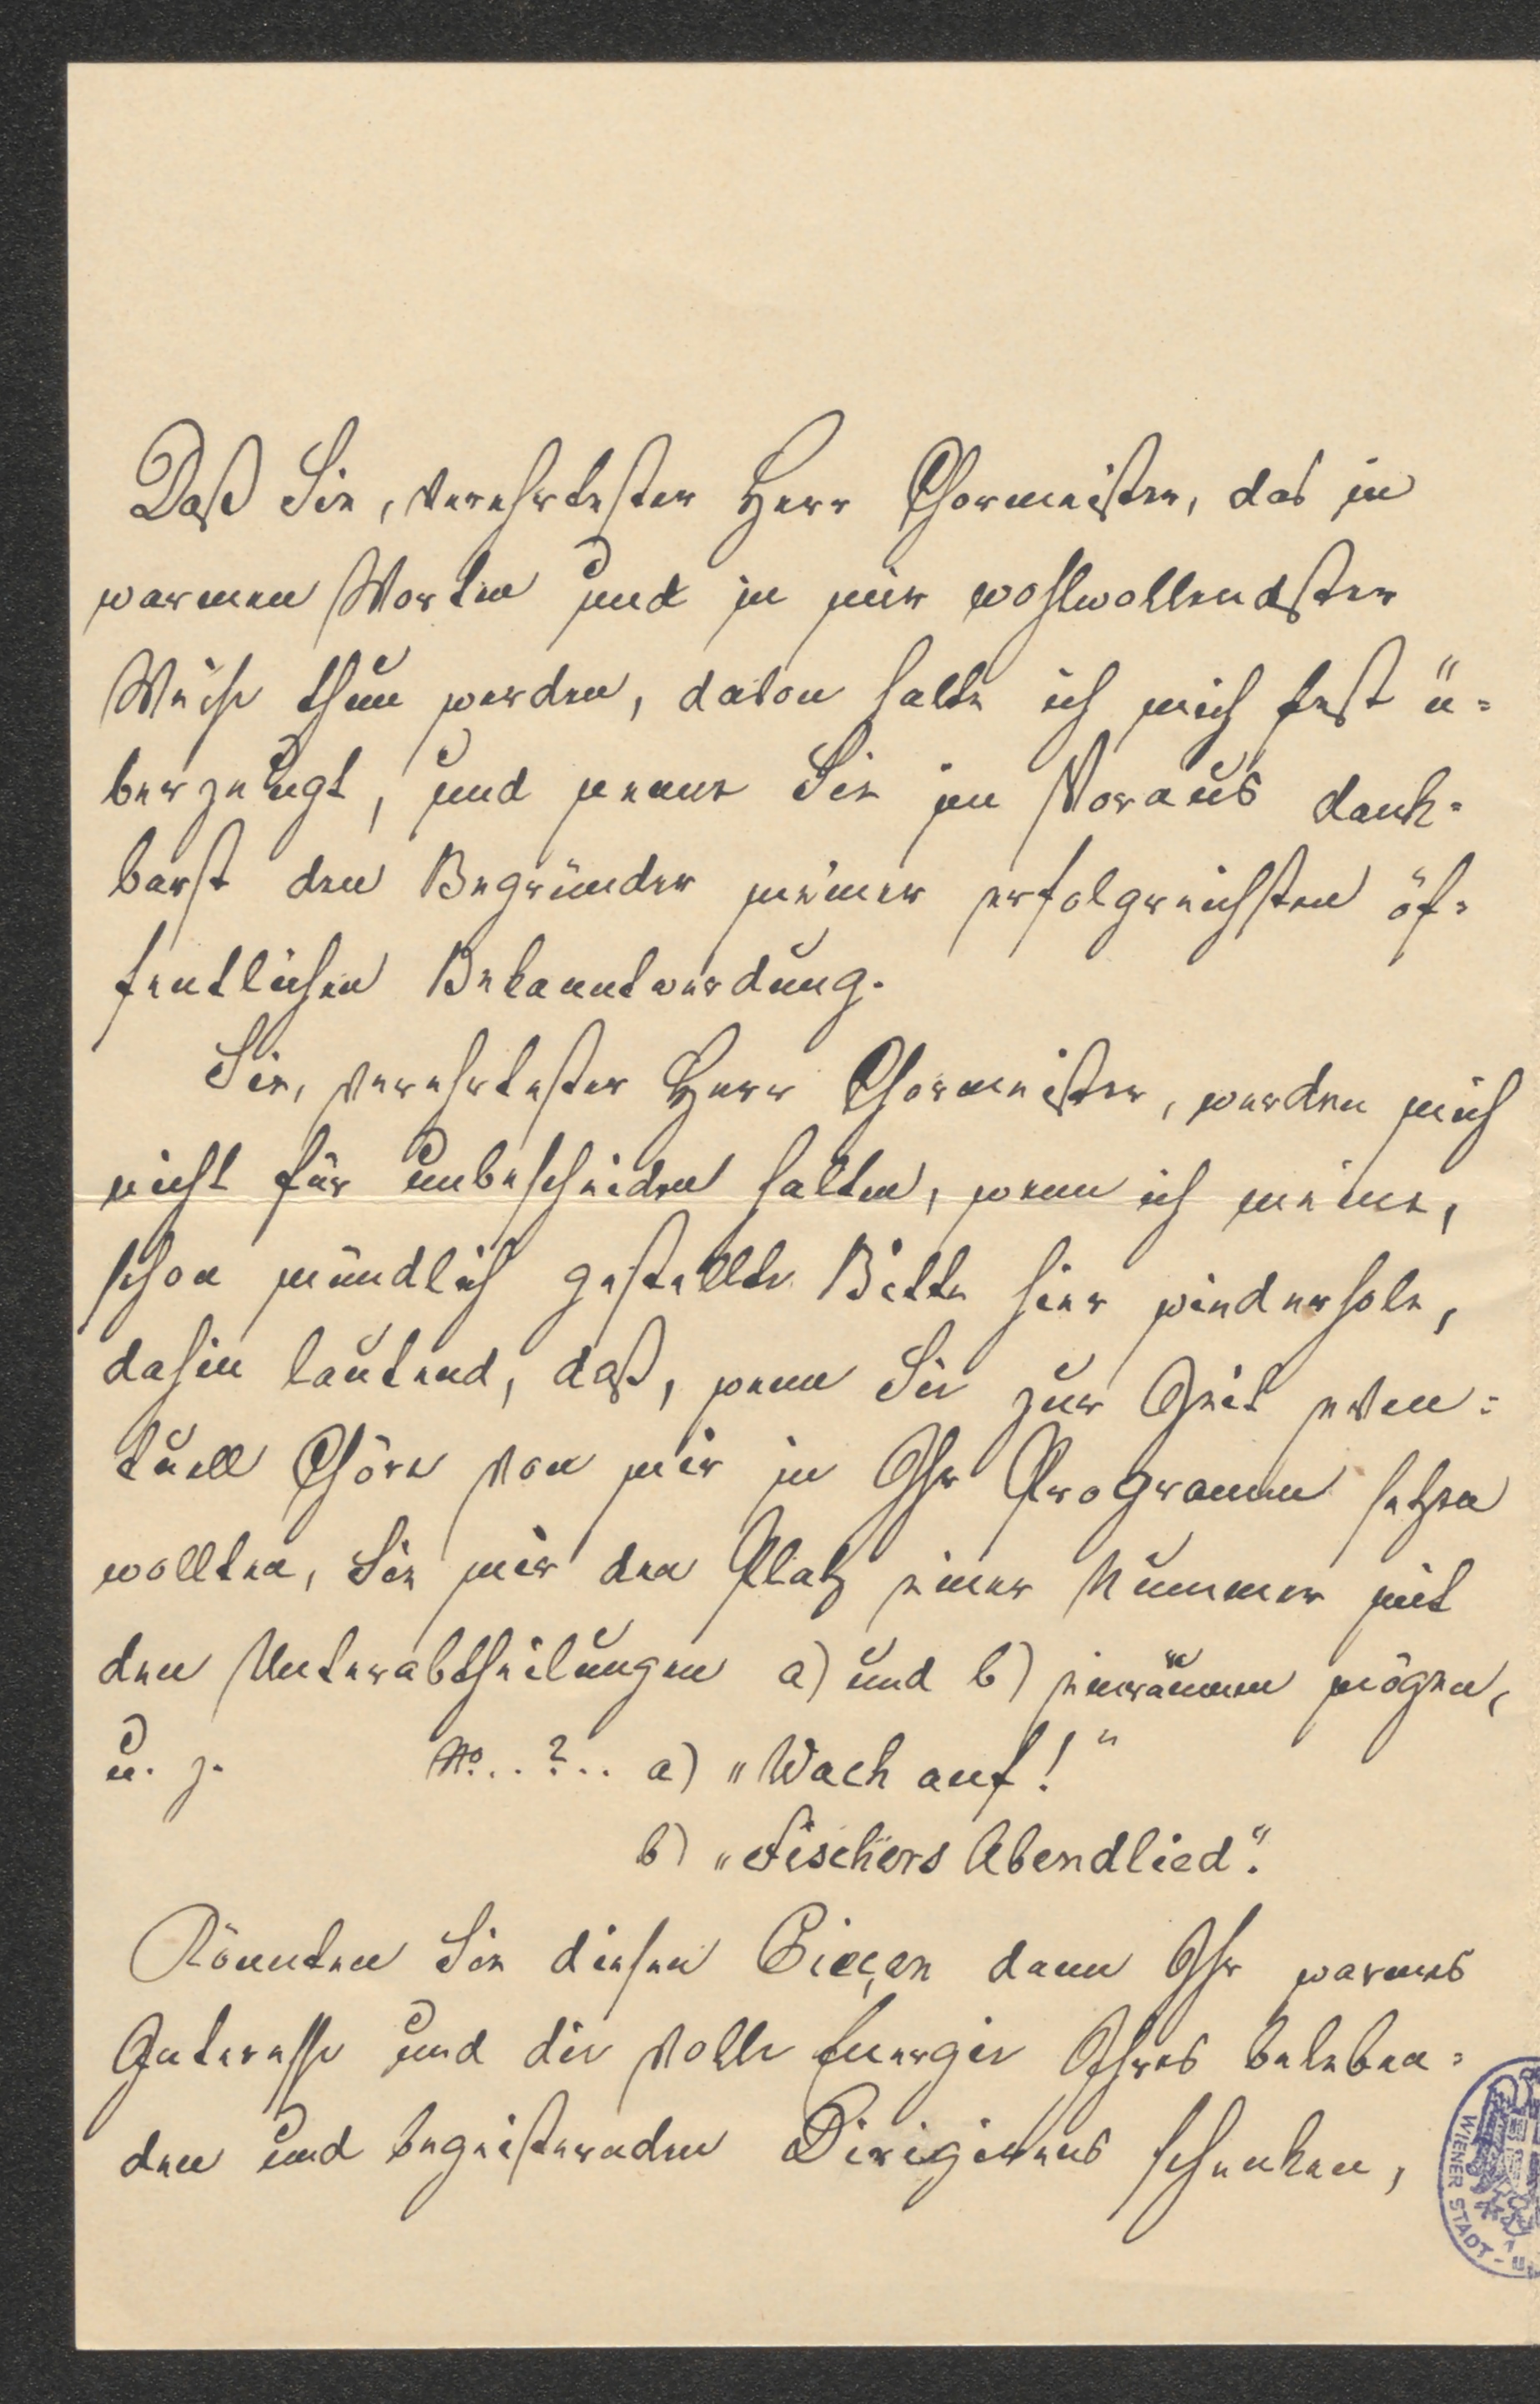 Daß Sie, verehrtester Herr Chormeister, das in
warmen Worten und in mir wohlwollendster
Weise thun werden, davon halte ich mich fest ü=
berzeugt, und nenne Sie im Voraus dank=
barst den Begründer meiner erfolgreichsten öf=
fentlichen Bekanntwerdung.
Sie, verehrtester Herr Chormeister, werden mich
nicht für unbescheiden halten, wenn ich meine,
schon mündlich gestellte Bitte hier wiederhole,
dahin lautend, daß, wenn Sie zur Zeit even=
tuell Chöre von mir in Ihr Programm setzen
wollten, Sie mir den Platz einer Nummer mit
den Unterabtheilungen a) und b) einräumen mögen,
u. z. No...?.. a) „Wach auf!"
b) „Fischers Abendlied".
Könnten Sie diesen Pieçen dann Ihr warmes
Interesse und die volle Energie Ihres beleben=
den und begeisternden Dirigirens schenken,
WIENER STADT-U